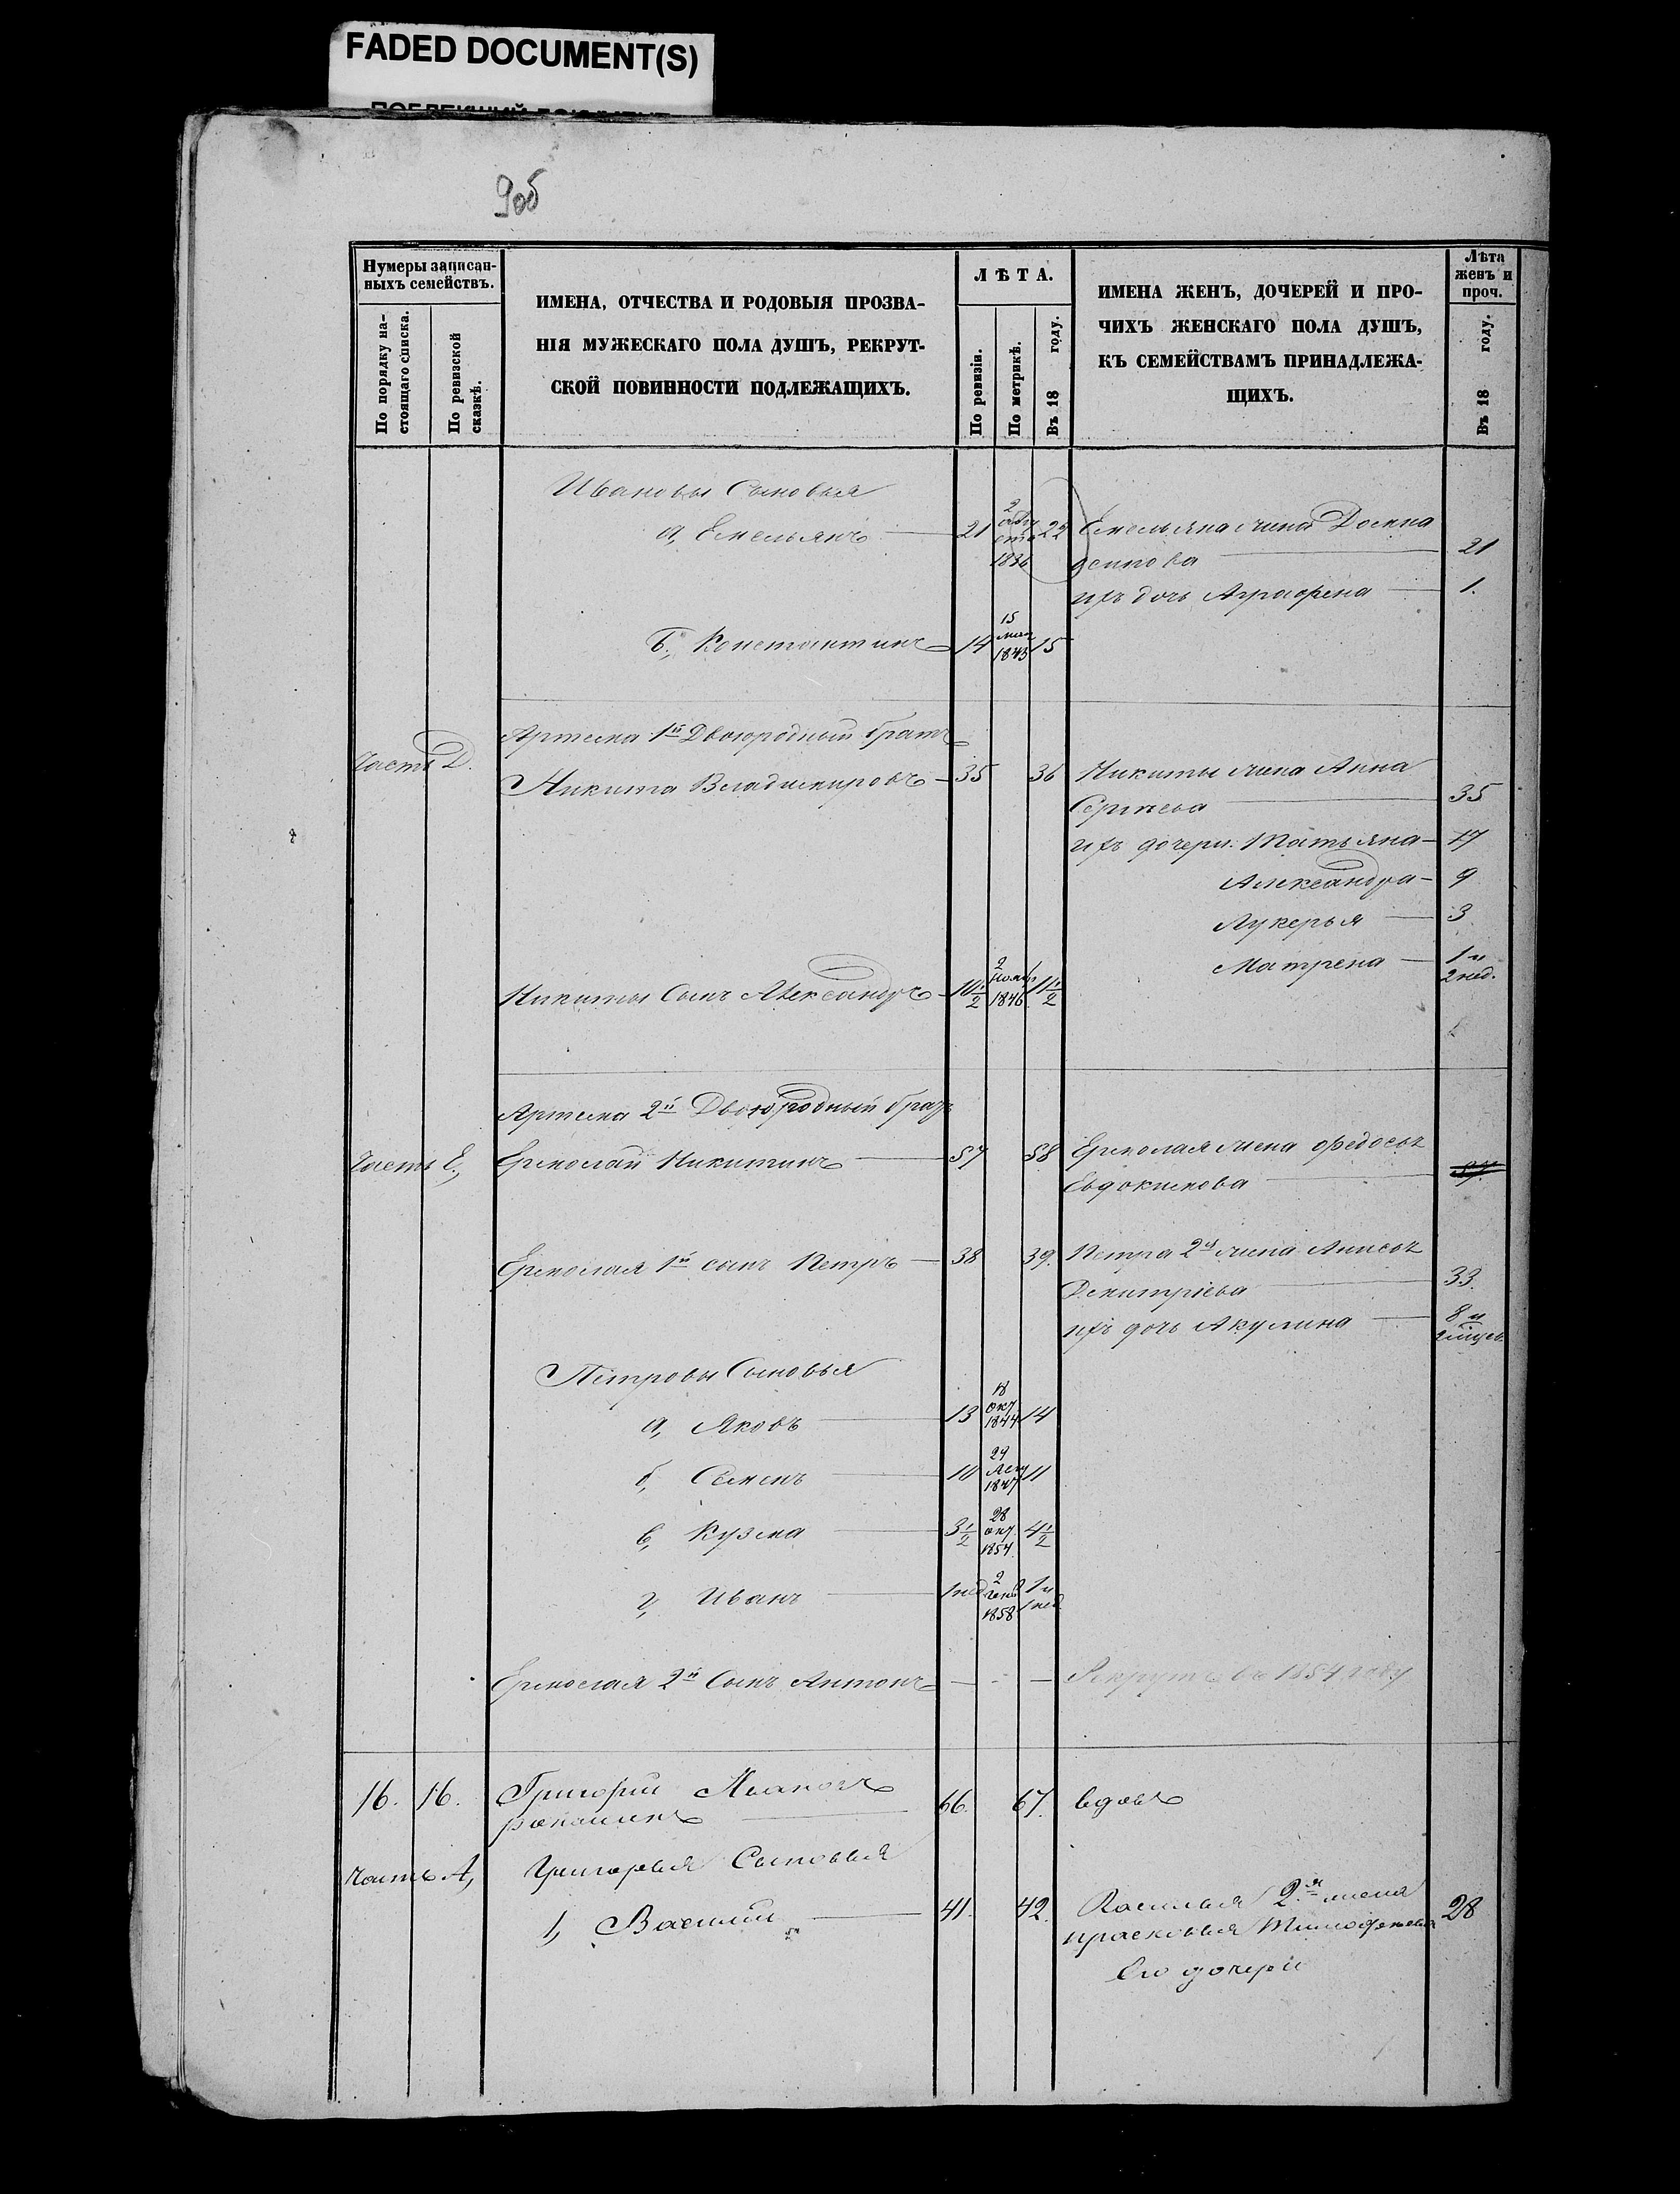 FADED DOCUMENT(S)
9об
Нумеры записан-
ныхъ семействъ.
По порядку на-
стоящаго списка.
По ревизской
сказкѣ.
ИМЕНА, ОТЧЕСТВА И РОДОВЫЯ ПРОЗВА-
НІЯ МУЖЕСКАГО ПОЛА ДУШЪ, РЕКРУТ-
СКОЙ ПОВИННОСТИ ПОДЛЕЖАЩИХЪ.
ЛѢТА.
По ревизіи.
По метрикѣ.
Въ 18 году.
ИМЕНА ЖЕНЪ, ДОЧЕРЕЙ И ПРО-
ЧИХЪ ЖЕНСКАГО ПОЛА ДУШЪ,
КЪ СЕМЕЙСТВАМЪ ПРИНАДЛЕЖА-
ЩИХЪ.
Лѣта
женъ и
проч.
Въ 18 году.
Ивановы Сыновья
а, Емельянъ 21 2 авгу ста 1836 22 Емельяна жена Домна
осипова 21
ихъ дочь Аграфена 1.
Б., Константинъ 14 15 мая 1843 15
Артема 1й Двоюродный братъ
Часть Д. Никита Владимировъ 35 36 Никиты жена Анна
Сергѣева 35
ихъ дочери: Татьяна 17
Александра 9
Лукерья 3
Матрена 1 и 2 нед.
Никиты Сынъ Александръ 10 1/2 2 ноябр 1846 11 1/2
Артема 2й Двоюродный братъ
Часть Е., Ермолай Никитинъ 57 58 Ермолая жена Федосья
Евдокимова 57.
Ермолая 1й сынъ Петръ 38 39. Петра 2я жена Анисья
Димитріева 33.
ихъ дочь Акулина 8 и
Петровы Сыновья
а, Яковъ 13 18 окт 1844 14
б, Семенъ 10 1847 11
в, Кузма 3 1/2 28 окт 1854 4 1/2
г, Иванъ 1 нед 2 генв 1858 1 и 1 нед.
Ермолая 2й Сынъ Антонъ Рекрутъ въ 1854 году
16. 16. Григорій Ивановъ 66. 67. вдовъ
Часть А, Григорья Сыновья
1, Василий 41. 42. Василья 2я жена
прасковья Тимофеева 28
Его дочери